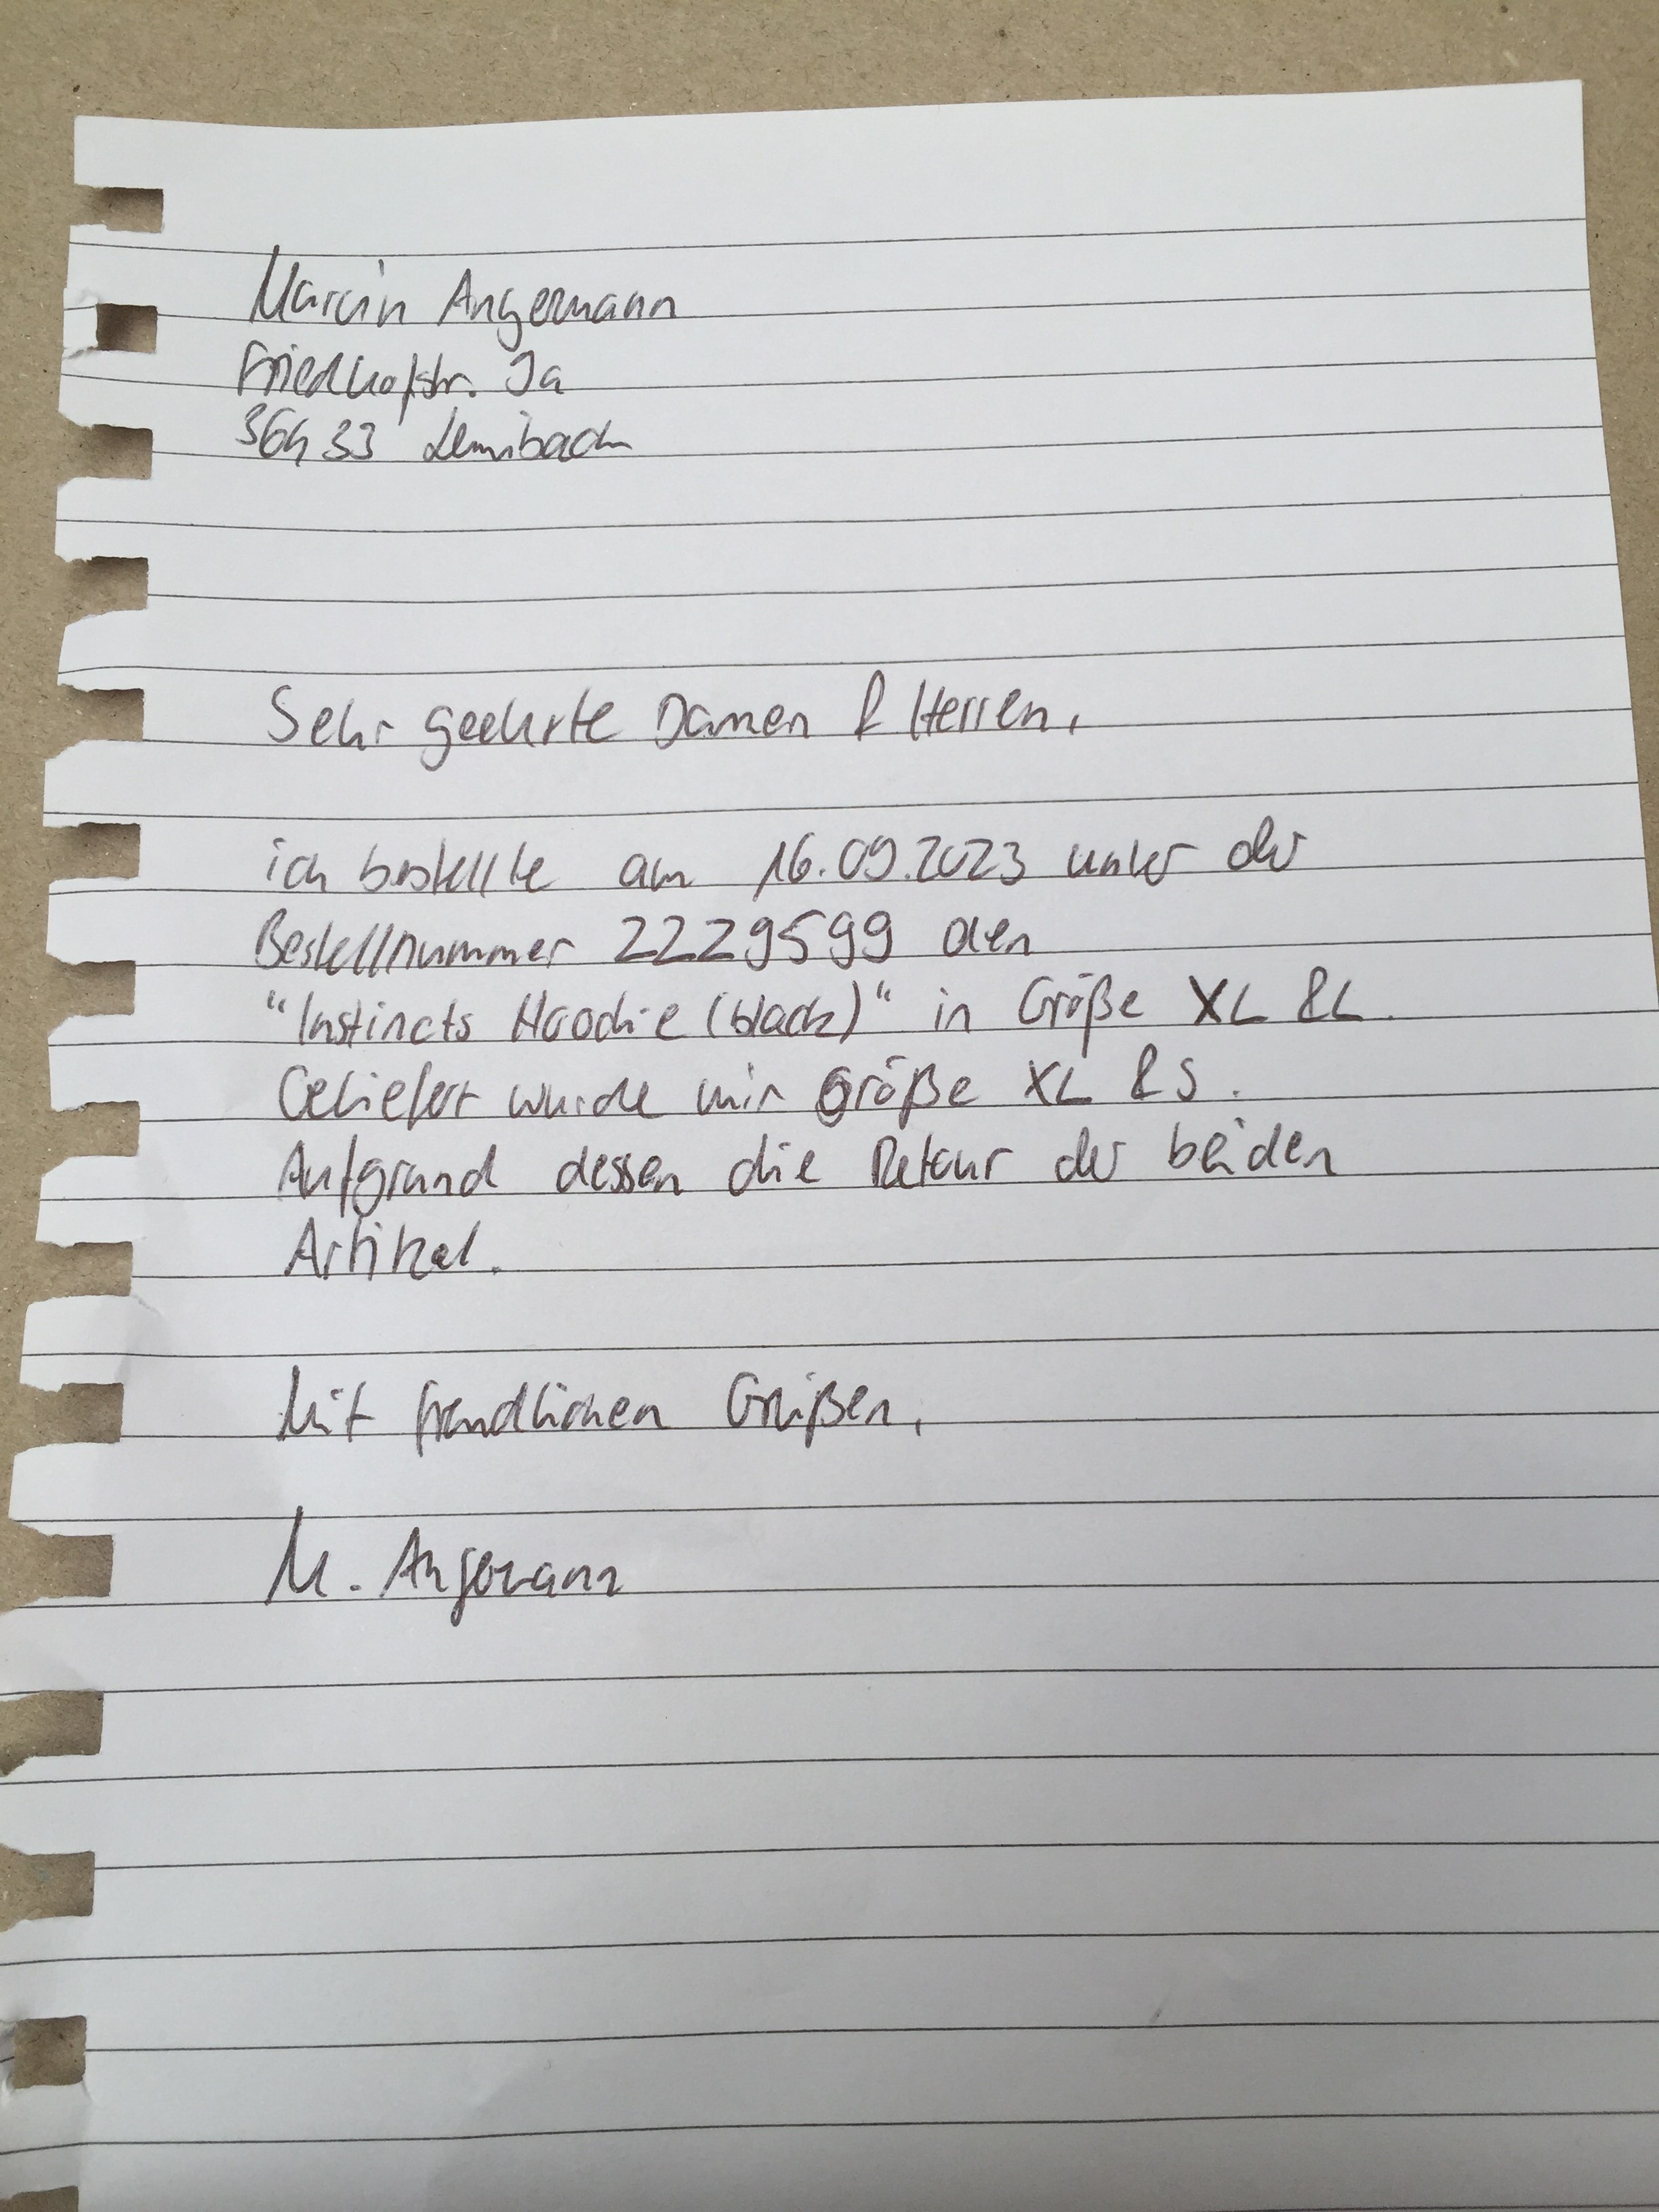 Marcin Angermann
Friedhofstr. 1a
36433 Leimbach
Sehr geehrte Damen & Herren,
ich bestellte am 16.09.2023 unter der
Bestellnummer 2229599 den
"Instincts Hoodie (black)" in Größe XL & L.
Geliefert wurde mir Größe XL & S.
Aufgrund dessen die Retour der beiden
Artikel.
Mit freundlichen Grüßen,
M. Angermann